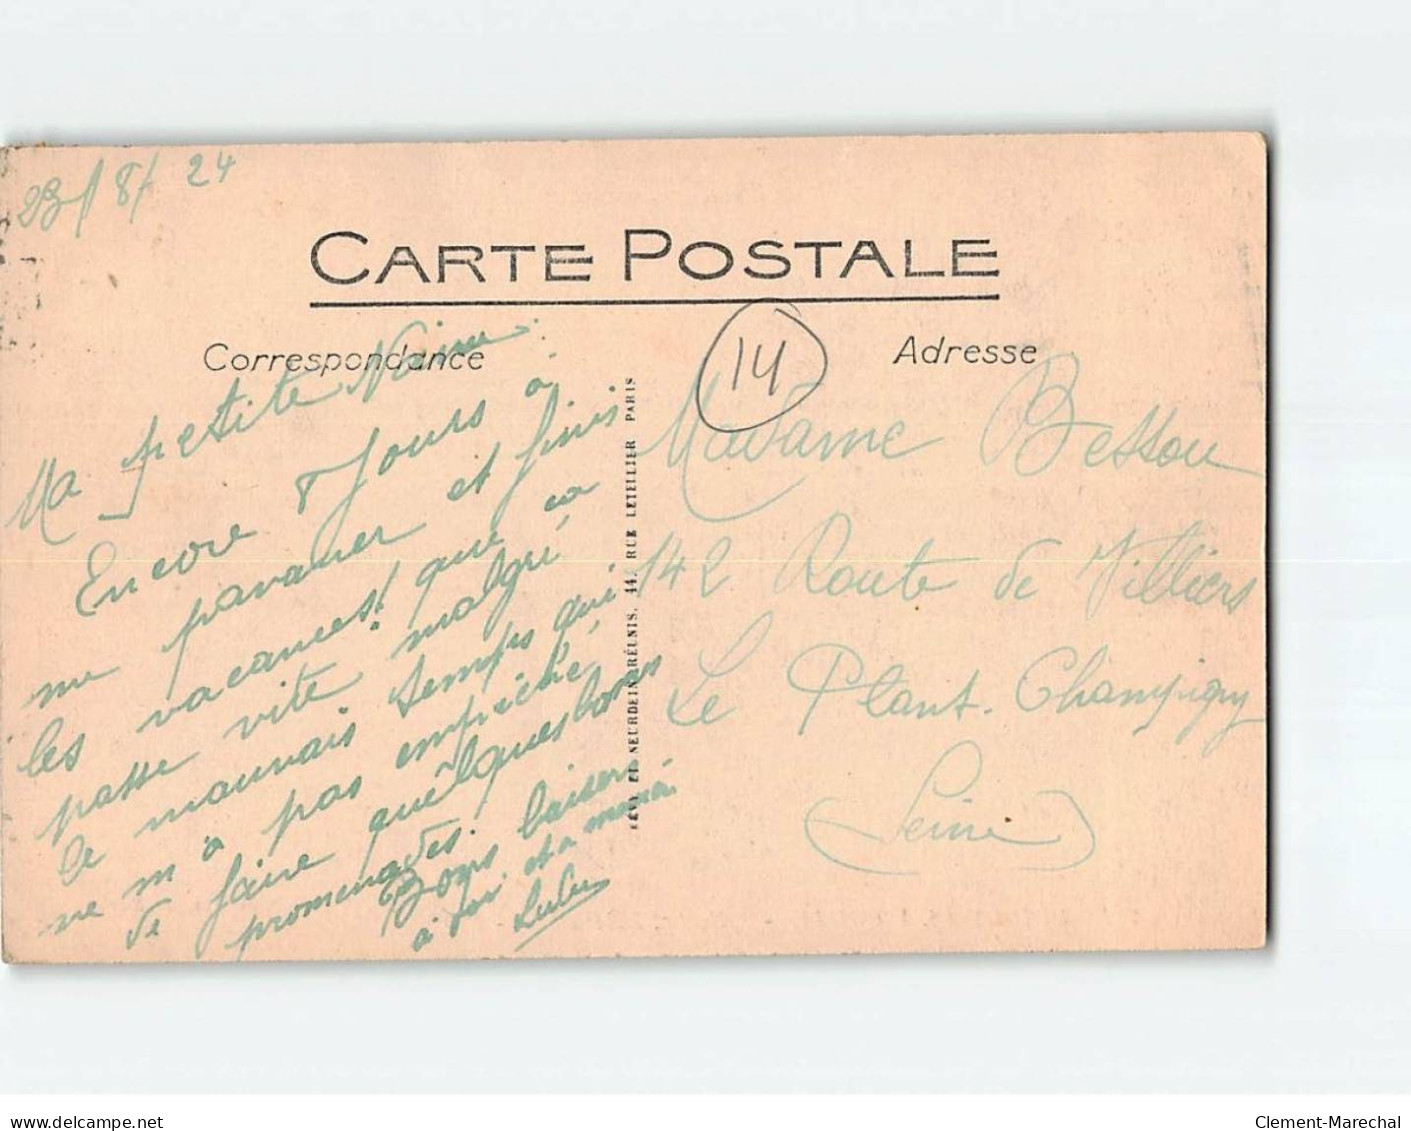 23/8/24
CARTE POSTALE
Correspondance
Adresse
14
Ma petite
Encore 8 Jours à
me pavaner et finis
les vacances! que ça
passe vite malgré
le mauvais temps qui
ne m'a pas empêché,
de faire quelques bonnes
promenades
Bons baisers
à toi et a mémé.
Lulu
LÉVY ET NEURDEIN RÉUNIS, 44, RUE LETELLIER PARIS
Madame Bessou
142 Route de Villiers
Le Plant. Champigny
(Seine)
www.delcampe.net
Clement-Marechal